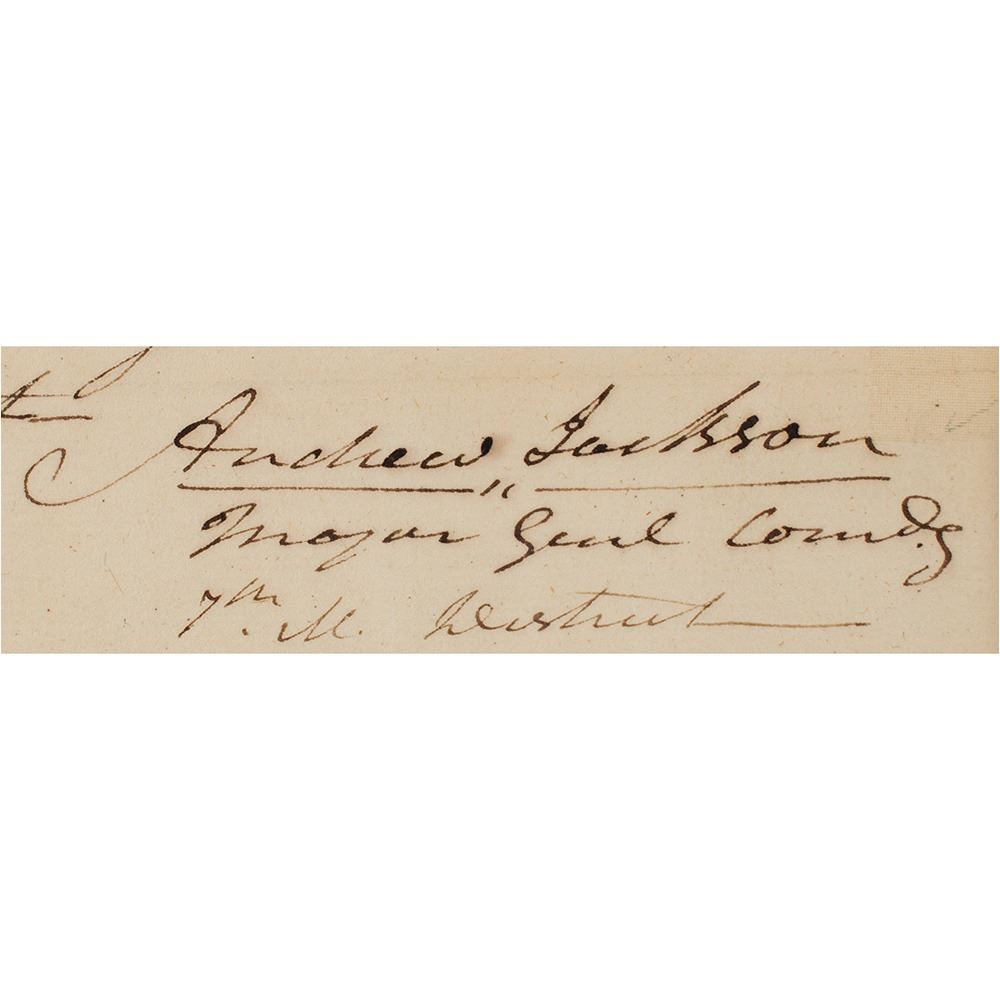 Andrew Jackson
Major Genl Comd.g
7th. M. District